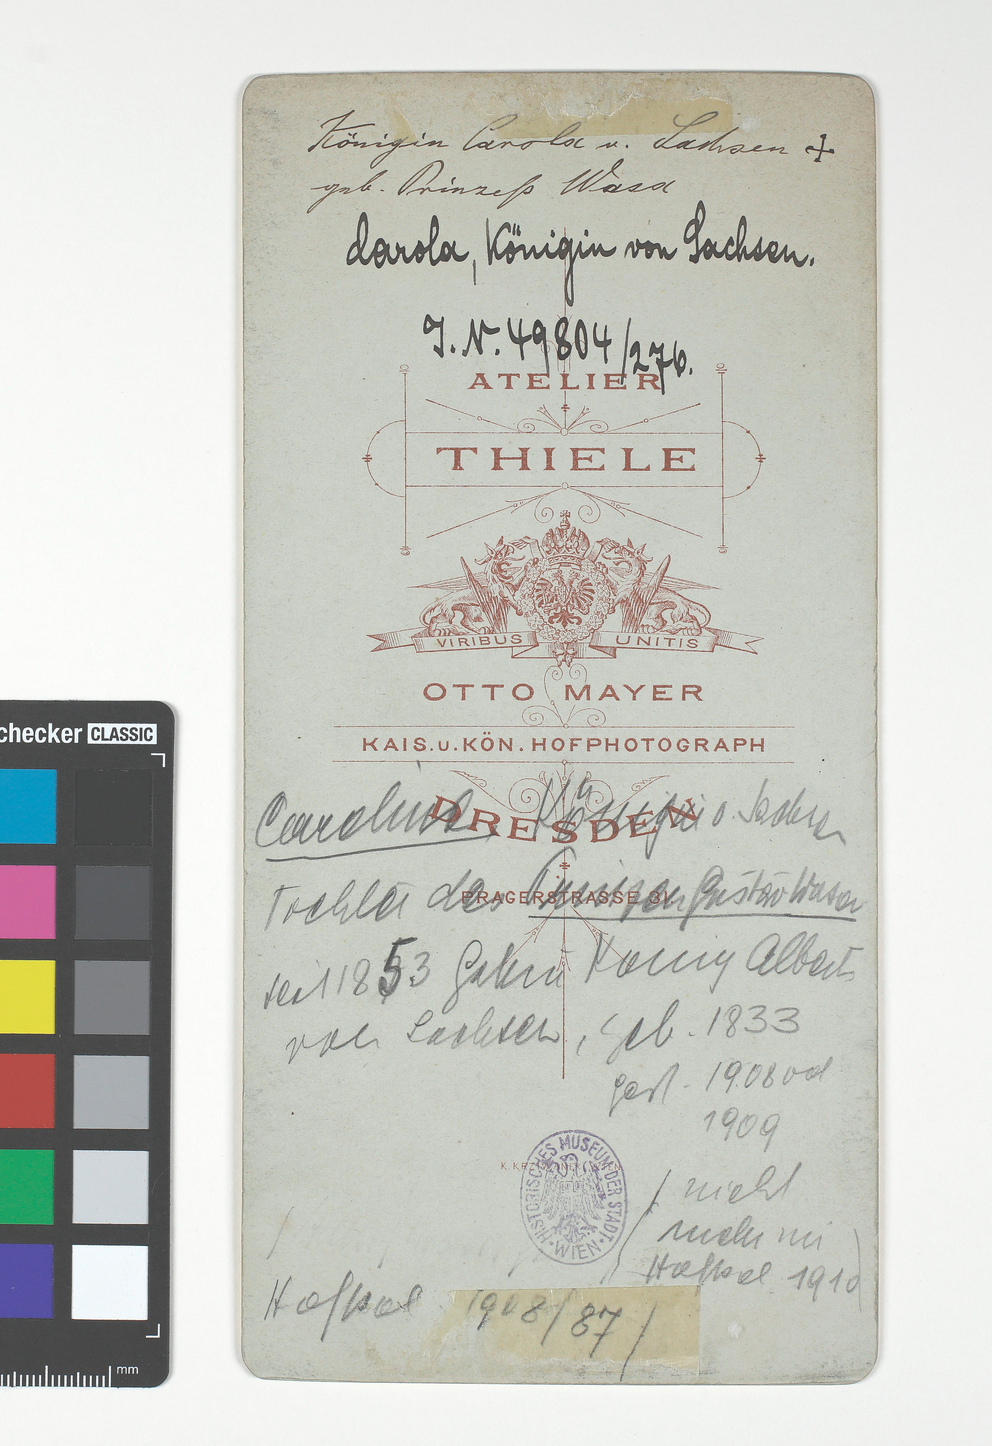 Königin Carola v. Sachsen +
geb. Prinzeß Wasa
Carola, Königin von Sachsen.
I.N. 49804/276.
ATELIER
THIELE
VIRIBUS UNITIS
OTTO MAYER
KAIS.u.KÖN.HOFPHOTOGRAPH
checker CLASSIC
DRESDEN
Königin v. Sachsen
PRAGERSTRASSE
Tochter des Prinzen Gustav Wasa
seit 1853 König Alberts
von Sachsen, geb. 1833
gest. 1908 od
1909
HISTORISCHES MUSEUM DER STADT WIEN
nicht
mehr im
Hofkal. 1910
Hofkal 1908/87/
mm